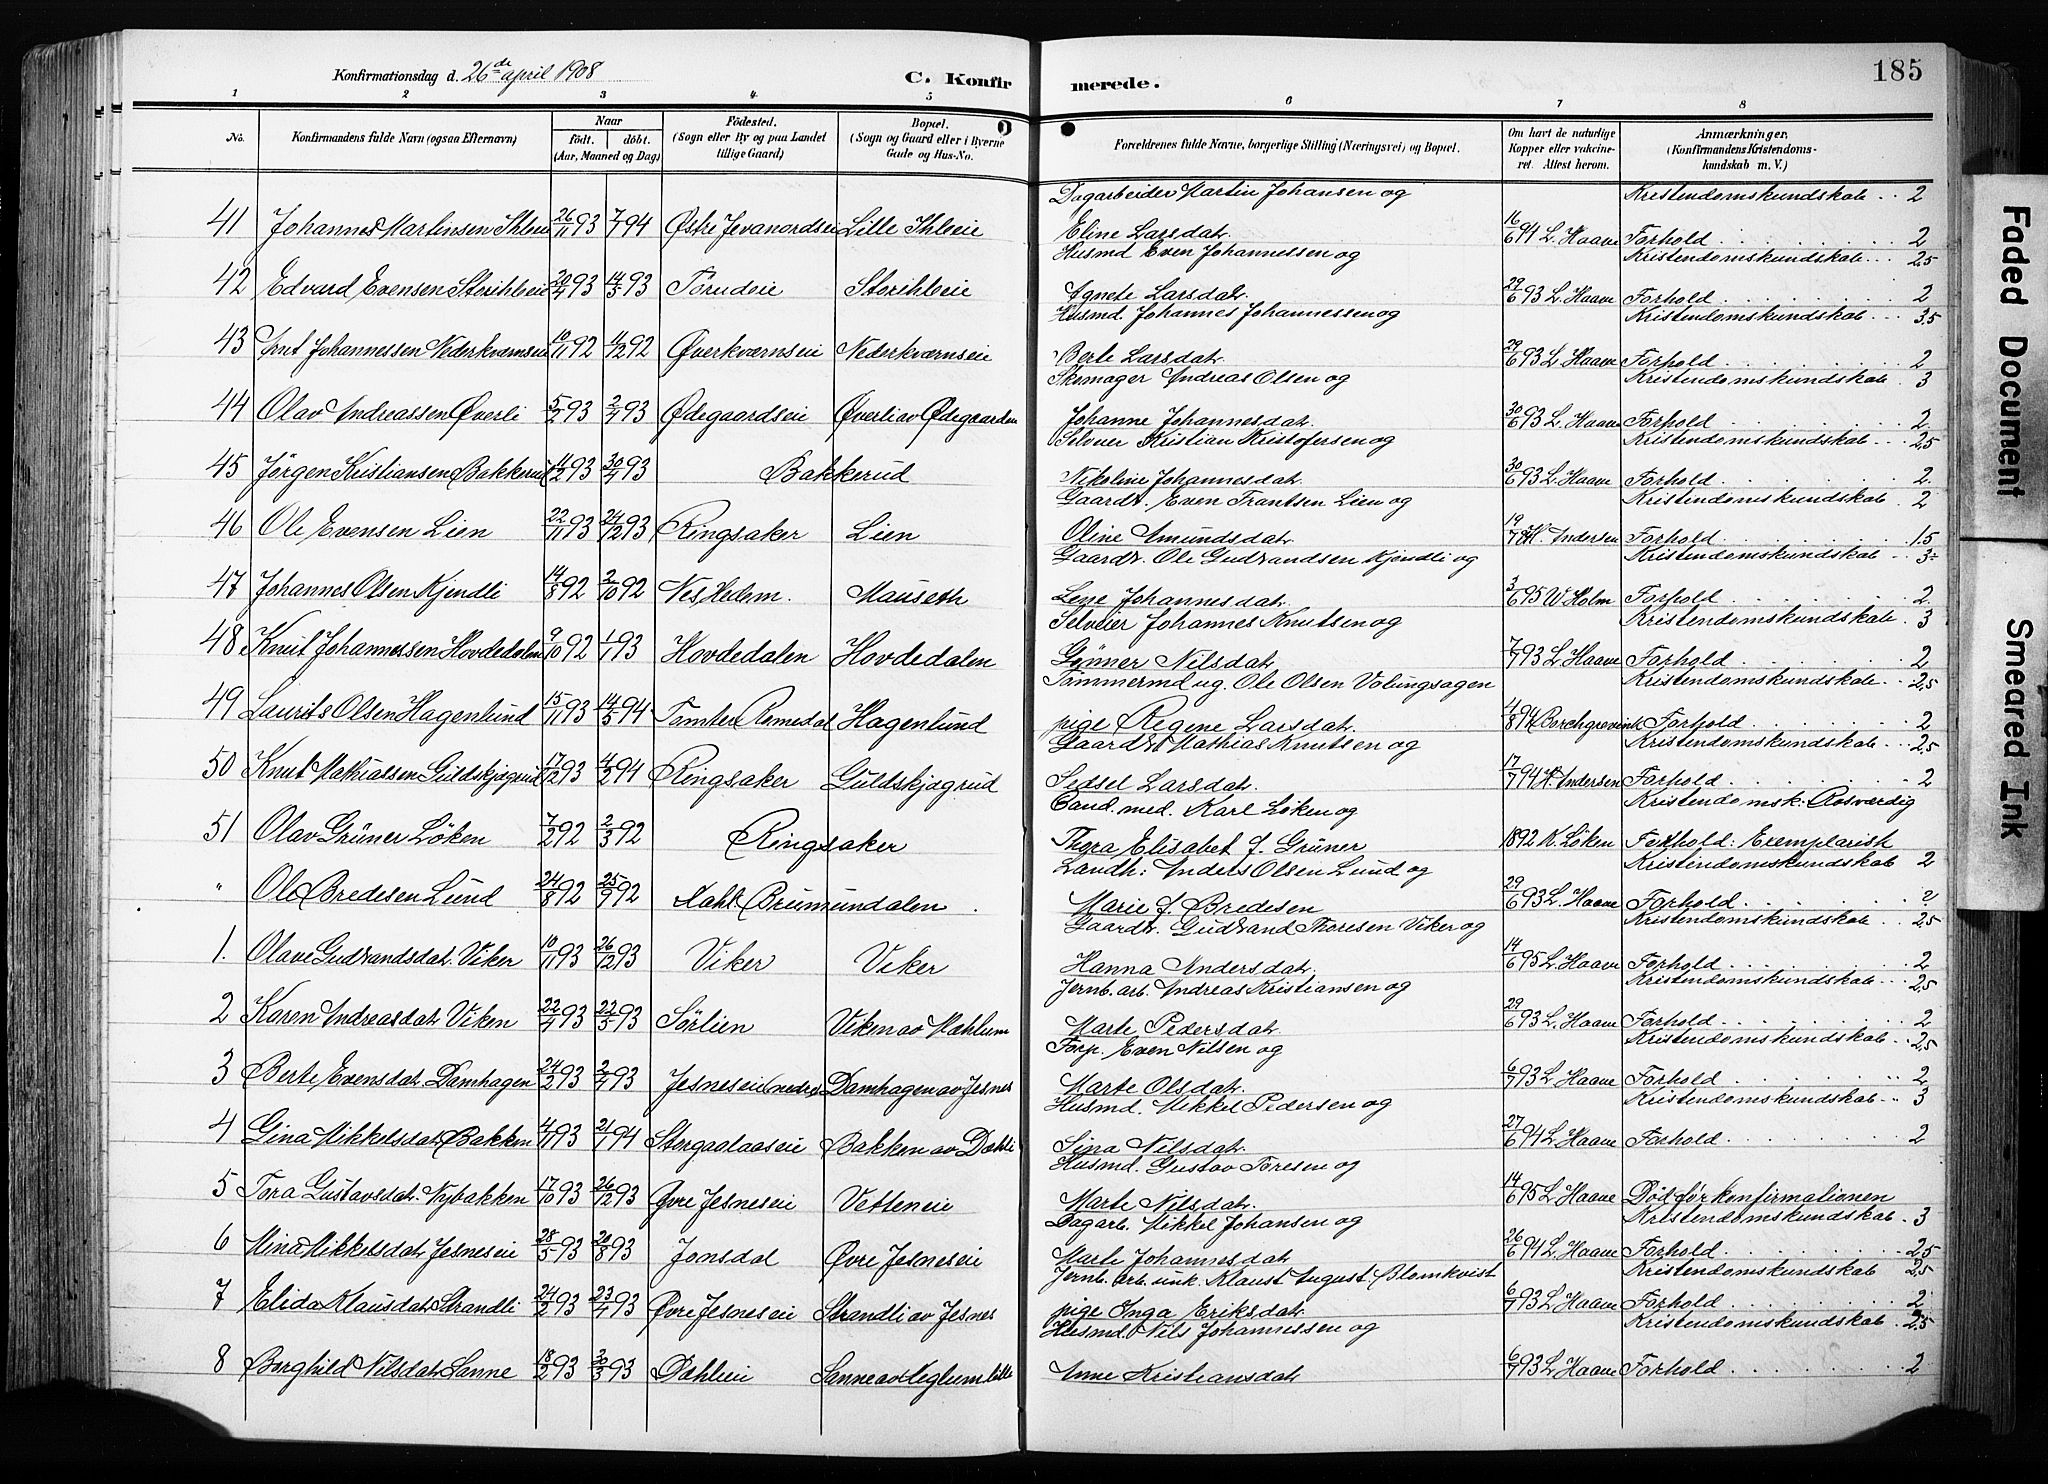 Konfirmationsdag d. 26de april 1908
C. Konfirmerede.
185
1 2 3 4 5 6 7 8
No. Konfirmandens fulde Navn (ogsaa Efternavn) Naar født. døbt. (Aar, Maaned og Dag) Fødested. (Sogn eller By og paa Landet tillige Gaard) Bopæl. (Sogn og Gaard eller i Byerne Gade og Hus-No. Forældrenes fulde Navne, borgerlige Stilling (Næringsvei) og Bopæl. Om havt de naturlige Kopper eller vaccineret. Attest herom. Anmærkninger. (Konfirmandens Kristendomskundskab m. V.)
Dagarbeider Martin Johansen og Kristendomskundskab 2
41 Johannes Martinsen Ihleeie 26/11 93 7/1 94 Østre Jevanordseie Lille Ihleeie Eline Larsdat. 16/6 94 L. Haave Forhold 2
Husmd Even Johannessen og Kristendomskundskab 2,5
42 Edvard Evensen Storihleeie 20/4 93 14/5 93 Törudeie Storihleeie Agnete Larsdat. 29/6 93 L. Haave Forhold 2
Husmd. Johannes Johannessen og Kristendomskundskab 3,5
43 Ant Johannessen Nederkværnseie 10/11 92 4/12 92 Øverkværnseie Nederkværnseie Berte Larsdat. 29/6 93 L. Haave Forhold 2
Skomager Andreas Olsen og Kristendomskundskab 3
44 Olav Andreassen Øverli 5/2 93 2/4 93 Ødegaardseie Øverli av Ødegaarden Johanne Johannesdat. 30/6 93 L. Haave Forhold 2
Selveier Kristian Kristofersen og Kristendomskundskab 2,5
45 Jörgen Kristiansen Bakkerud 11/2 93 30/4 93 Bakkerud Nikoline Johannesdat. 30/6 93 L. Haave Forhold 2
Gaardr. Even Frantsen Lien og Kristendomskundskab 2
46 Ole Evensen Lien 22/11 93 24/12 93 Ringsaker Lien Oline Amundsdat. 19/7 94 H. Andersen Forhold 1.5
Gaardr. Ole Gudbrandsen Kjendli og Kristendomskundskab 3-
47 Johannes Olsen Kjendli 14/8 92 2/10 92 Nes Hedem. Mauseth Lene Johannesdat. 3/6 95 W Holm Forhold 2
Selveier Johannes Knutsen og Kristendomskundskab 3
48 Knut Johannessen Hovdedalen 9/10 92 1/1 93 Hovdedalen Hovdedalen Gunner Nilsdat. 7/7 93 L. Haave Forhold 2
Tömmermd ug. Ole Olsen Volungsagen Kristendomskundskab 2,5
49 Laurits Olsen Hagenlund 15/11 93 14/5 94 Tomter Romedal Hagenlund pige Regine Larsdat. 4/8 94 Borchgrevink Forhold 2
Gaardr. Mathias Knutsen og Kristendomskundskab 2,5
50 Knut Mathiassen Guldskjægrud 17/12 93 4/2 94 Ringsaker Guldskjægrud Sedsel Larsdat. 17/7 94 H. Andersen Forhold 2
Cand. med. Karl Löken og Kristendomsk: Rosværdig
51 Olav Grüner Löken 7/2 92 2/3 92 Ringsaker Thora Elisabet f. Grüner 1892 K. Löken Forhold: Exemplarisk
Landh: Anders Olsen Lund og Kristendomskundskab 2
" Ole Bredesen Lund 24/8 92 25/9 92 Dahl Brumundalen Marie f. Bredesen 29/6 93 L. Haave Forhold 2
Gaardr. Gudbrand Thoresen Viker og Kristendomskundskab 2,5
1. Olave Gudbrandsdat. Viker 10/11 93 26/12 93 Viker Viker Hanna Andersdat. 14/6 95 L. Haave Forhold 2
Jernb. arb. Andreas Kristiansen og Kristendomskundskab 2,5
2 Karen Andreasdat. Viken 22/4 93 22/5 93 Sörlien Viken av Mæhlum Marte Pedersdat. 29/6 93 L. Haave Forhold 2
Forp. Even Nilsen og Kristendomskundskab 2,5
3 Berte Evensdat. Damhagen 24/2 93 2/4 93 Jesneseie (nedre) Damhagen av Jesnes Marte Olsdat. 6/7 93 L. Haave Forhold 2
Husmd. Mikkel Pedersen og Kristendomskundskab 3
4 Gina Mikkelsdat. Bakken 4/11 93 21/1 94 Stergaalaaseie Bakken av Dæhli Sina Nilsdat. 27/6 94 L. Haave Forhold 2
Husmd. Gustav Toresen og
5 Tora Gustavsdat. Nybakken 17/10 93 26/12 93 Øvre Jesneseie Vetteneie Marte Nilsdat. 14/6 95 L. Haave Död för konfirmationen
Dagarb. Mikkel Johansen og Kristendomskundskab 3
6 Mina Mikkelsdat. Jesneseie 28/5 93 20/8 93 Jonsdal Øvre Jesneseie Marte Johannesdat. 26/6 94 L. Haave Forhold 2,5
Jernb. arb. unk. Klaus August Blomkvist Kristendomskundskab 2,5
7 Elida Klausdat. Strandli 24/2 93 23/4 93 Øvre Jesneseie Strandli av Jesnes pige Inga Eriksdat. 6/7 93 L. Haave Forhold 2
Husmd. Nils Johannessen og Kristendomskundskab 2,5
8 Borghild Nilsdat. Sanne 18/2 93 30/3 93 Dæhlieie Sanne av Neglum lille Anne Kristiansdat. 6/7 93 L. Haave Forhold 2
Faded Document
Smeared Ink